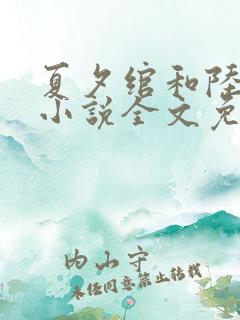 夏夕绾和陸
小説全文免
内山守
未经同意禁止转载